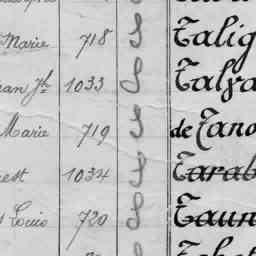 Marie 718 S Talig
ean Jh 1033 S Talva
Marie 719 S de Tano
est 1034 S Tarab
s Louis 720 S Taun